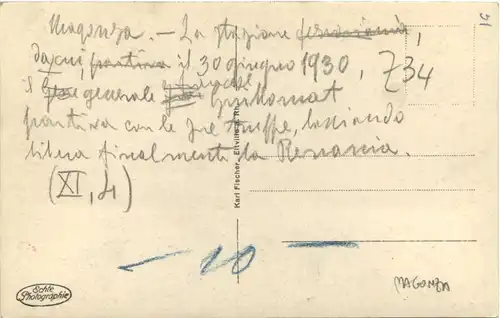 Magonza. - La stazione ferroviaria,
da cui, partiva il 30 giugno 1930, Z34
il generale francese Guillaumat
partiva con le sue truppe, lasciando
libera finalmente la Renania.
(XI, 4)
Karl Fischer, Eltville a. Rh.
- 10
Echte
Photographie
MAGONZA